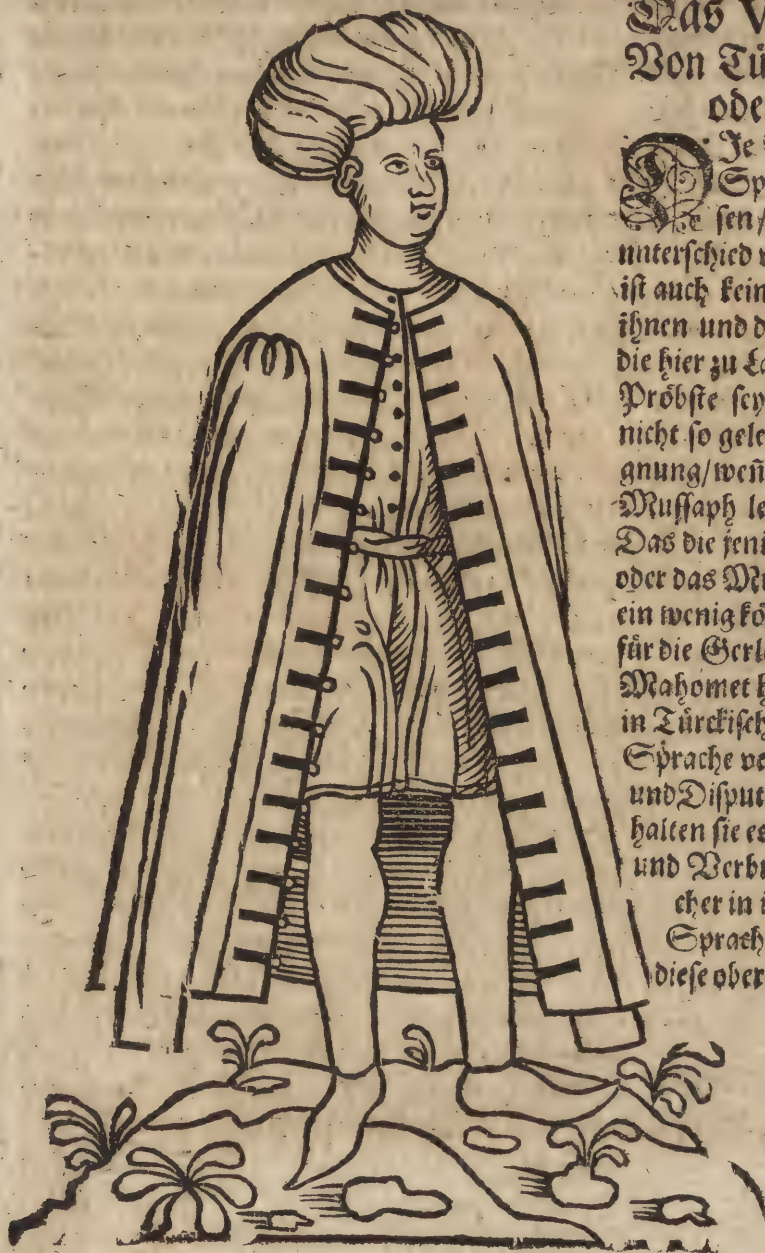 Das V
Von Tü
ode
DJe
Sp
sen/
unterschied v
ist auch kein
ihnen und d
die hier zu La
Pröbste sey
nicht so gele
gnung/weñ
Mussaph le
Das die jeni
oder das Mu
ein wenig kö
für die Gerla
Mahomet h
in Türckisch
Sprache ve
und Disput
halten sie es
und Verbr
cher in i
Sprach
diese ober